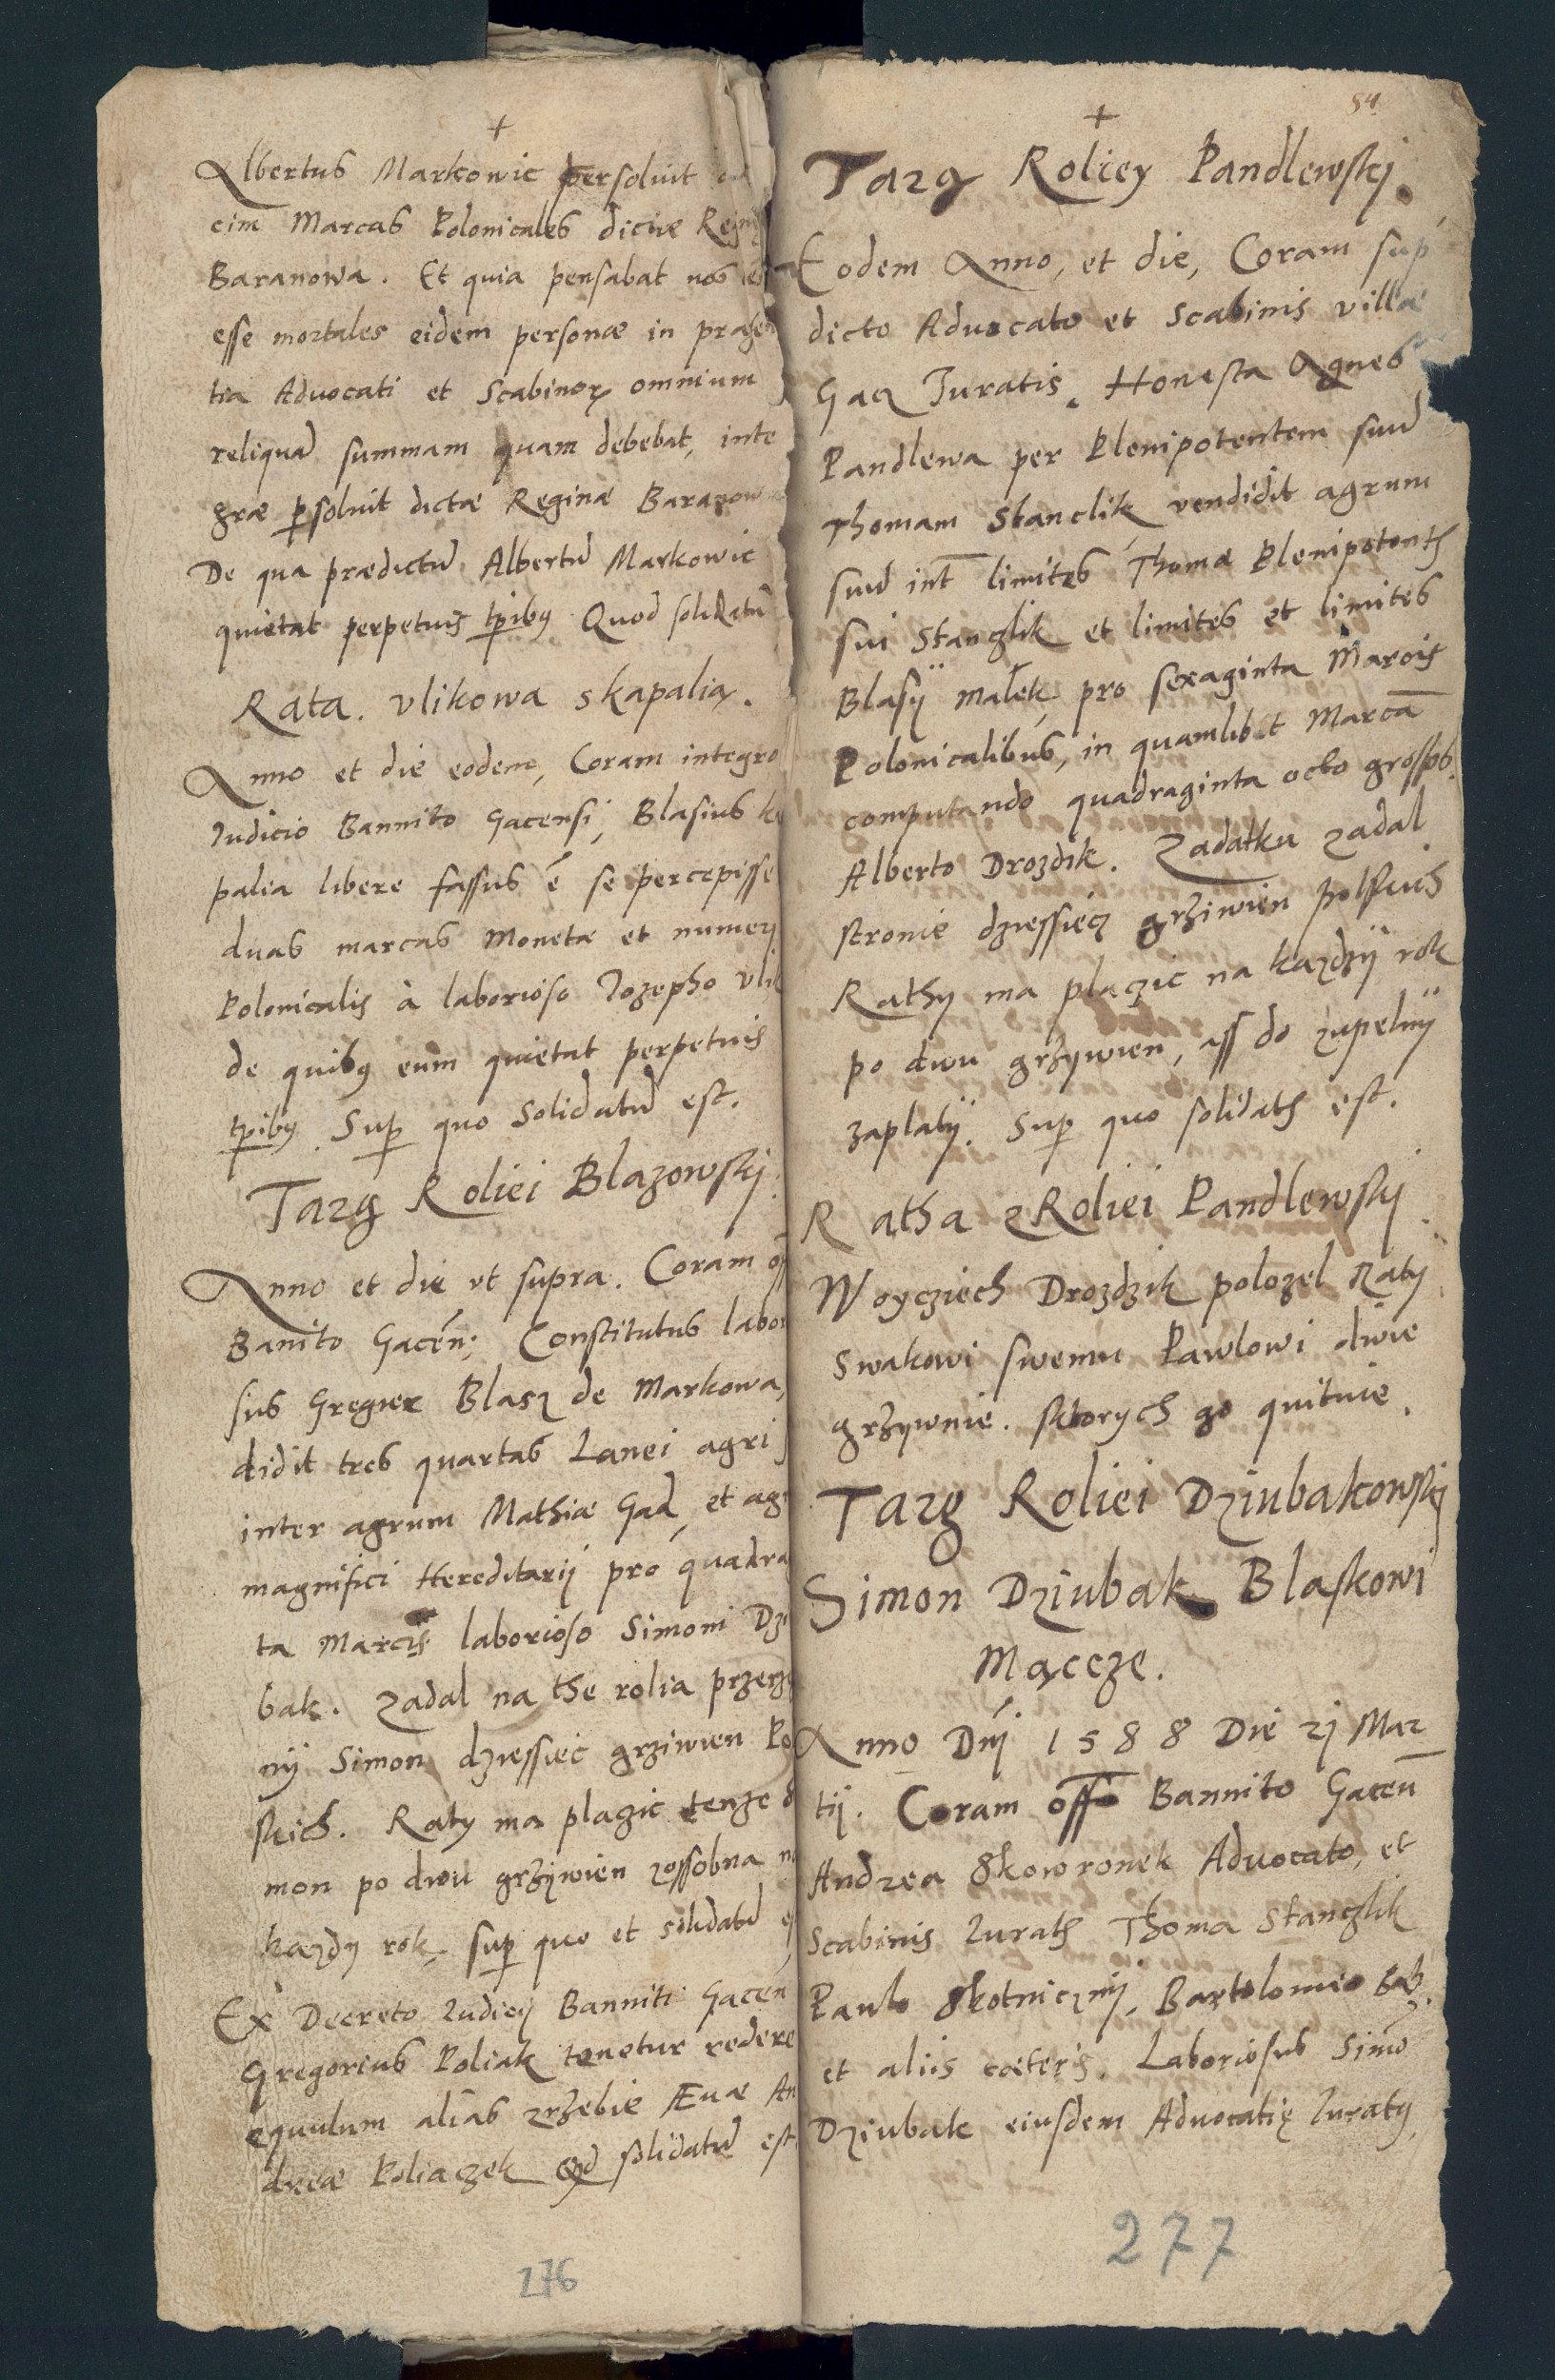 +
Albertus Markowic persoluit
cim Marcas Polonicales dictæ Regin
Baranowa. Et quia pensabat nos
esse mortales eidem personæ in præsen
tia Advocati et Scabinorꝝ omnium
reliquā summam quam debebat, inte
græ p̱soluit dictæ Reginæ Baranow
De qua prædictū Albertū Markowic
quietat perpetuis tp̱ibꝰ Quod solidatū
Rata. vlikowa skapalią.
Anno et die eodem, Coram integro
Iudicio Bannito Gacensi, Blasius ka
palia libere fassus ē se percepisse
duas marcas Monetæ et numeri
Polonicalis à laborioso Iozepho vlik
de quibꝰ eum quietat perpetuis
tp̱ibꝰ. Sup̱ quo solidatū est.
Targ Roliei Blazowskj.
Anno et die vt supra. Coram off
Banito Gaceñ: Constitutus labor
sus Gregier Blasz de Markowa,
didit tres quartas Lanei agri
inter agrum Mathiæ Gad, et agr
magnifici Hereditarij pro quadra
ta Marcis laborioso Simoni Dzi
bak. Zadal na the rolia przerze
nÿ Simon dziessiec grziwien Po
skich. Raty ma plazic tenze
mon po dwu grzÿwien zossobna na
kazdy rok, sup̱ quo et solidatū
Ex Decreto Iudicij Banniti Gacen
Gregorius Poliak tenetur redere
equulum aliâs zrzebie Æuæ An
dreæ Poliaczek qd solidatū est.
276
54
+
Targ Roliey Pandlewskj.
Eodem Anno, et die, Coram sup
dicto Aduocato et Scabinis villæ
Gacz Iuratis. Honesta Agnes
Pandlewa per Plenipotentem suū
Thomam Stanclik, vendidit agrum
suū int̄ limites Thomæ Plenipotentis
sui Stanglik et limites et limites
Blasÿ Małek, pro sexaginta Marcis
Polonicalibus, in quamlibet Marcā
computando quadraginta octo grossos.
Alberto Drozdik. Zadatku zadal
stronie dziessiecz grziwien polskich
Rathy ma placzic na kazdzÿ rok
po dwu grzywien, ass do zupelnÿ
zaplatÿ. Sup̱ quo solidatū est.
Ratha z Roliei Pandlewskj.
Woyczięch Drozdzik polozel Raty
Swakowi swemu Pawlowi dwie
grzywnie. ktorych go quituie.
Targ Roliei Dziubakowskj
Simon Dziubak Blaskowi
Mącęze.
Anno Dn̄i 1588 Die 21 Mar
tij. Coram offo Bannito Gaceñ
Andrea Skowronek Advocato, et
Scabinis Iuratis Thoma Stanglik
Paulo Skotnicznÿ, Bartolomeo Bąb
et aliis cæteris. Laboriosus Simō
Dziubak eiusdem Advocatię Iuratꝰ
277